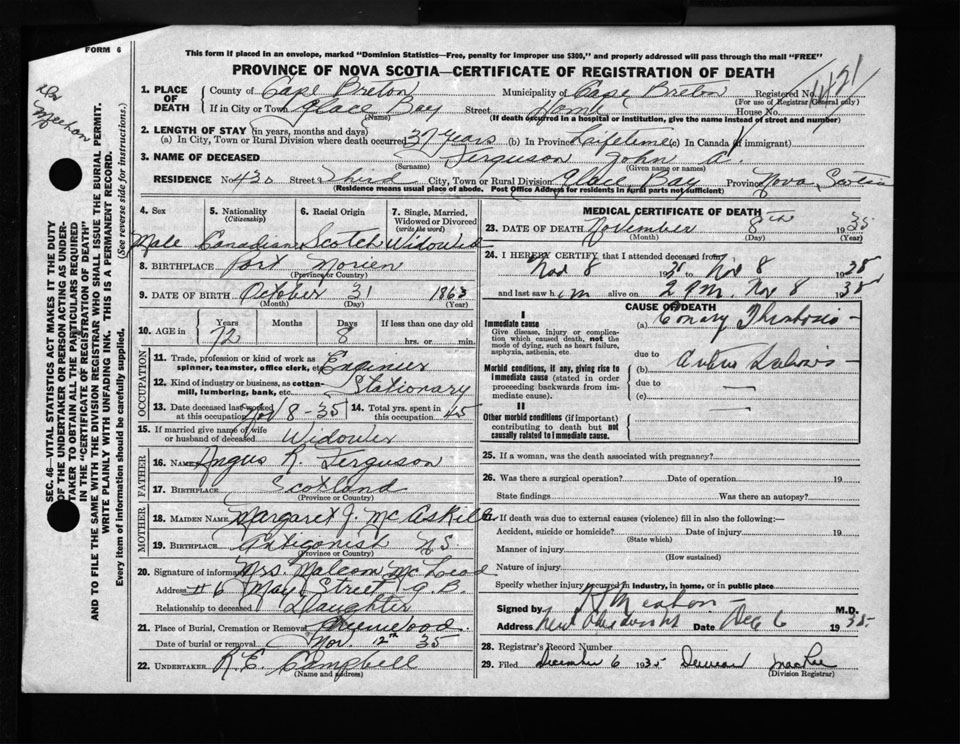 FORM 6
This form if placed in an envelope, marked "Dominion Statistics—Free, penalty for improper use $300," and properly addressed will pass through the mail "FREE"
PROVINCE OF NOVA SCOTIA—CERTIFICATE OF REGISTRATION OF DEATH
Dr Meehon
SEC. 46—VITAL STATISTICS ACT MAKES IT THE DUTY
OF THE UNDERTAKER OR PERSON ACTING AS UNDER-
TAKER TO OBTAIN ALL THE PARTICULARS REQUIRED
IN THE "CERTIFICATE OF REGISTRATION OF DEATH"
AND TO FILE THE SAME WITH THE DIVISION REGISTRAR WHO SHALL ISSUE THE BURIAL PERMIT.
WRITE PLAINLY WITH UNFADING INK. THIS IS A PERMANENT RECORD.
Every item of information should be carefully supplied. (See reverse side for instructions.)
1. PLACE OF DEATH County of Cape Breton Municipality of Cape Breton Registered No.
(For use of Registrar General only)
If in City or Town Glace Bay Street Home House No.
(Name) (If death occurred in a hospital or institution, give the name instead of street and number)
2. LENGTH OF STAY (in years, months and days)
(a) In City, Town or Rural Division where death occurred 37 years (b) In Province Lifetime (c) In Canada (if immigrant)
3. NAME OF DECEASED Ferguson John A.
(Surname) (Given name or names)
RESIDENCE No 430 Street Third City, Town or Rural Division Glace Bay Province Nova Scotia
(Residence means usual place of abode. Post Office Address for residents in rural parts not sufficient)
4. Sex 5. Nationality (Citizenship) 6. Racial Origin 7. Single, Married, Widowed or Divorced (write the word)
Male Canadian Scotch Widowed
8. BIRTHPLACE Port Morien
(Province or Country)
9. DATE OF BIRTH October 31 1863
(Month) (Day) (Year)
10. AGE in Years Months Days If less than one day old
72 8 hrs. or min.
OCCUPATION
11. Trade, profession or kind of work as spinner, teamster, office clerk, etc. Engineer
12. Kind of industry or business, as cotton-mill, lumbering, bank, etc. Stationary
13. Date deceased last worked at this occupation Nov 8 - 35 14. Total yrs. spent in this occupation 45
15. If married give name of wife or husband of deceased Widower
FATHER
16. NAME Angus R. Ferguson
17. BIRTHPLACE Scotland
(Province or Country)
MOTHER
18. MAIDEN NAME Margaret J. McAskill
19. BIRTHPLACE Antigonish NS
(Province or Country)
20. Signature of informant Mrs. Malcom McLeod
Address # 6 May Street G.B.
Relationship to deceased Daughter
21. Place of Burial, Cremation or Removal Greenwood
Date of burial or removal Nov. 12th 35
22. UNDERTAKER R.E. Campbell
(Name and address)
MEDICAL CERTIFICATE OF DEATH
23. DATE OF DEATH November 8th 1935
(Month) (Day) (Year)
24. I HEREBY CERTIFY that I attended deceased from
Nov 8 1935 to Nov 8 1935
and last saw him alive on 2 P.M. Nov 8 1935
CAUSE OF DEATH
I
Immediate cause (a)
Give disease, injury or complication which caused death, not the mode of dying, such as heart failure, asphyxia, asthenia, etc.
due to
Morbid conditions, if any, giving rise to immediate cause (stated in order proceeding backwards from immediate cause). (b)
due to
(c)
II
Other morbid conditions (if important) contributing to death but not causally related to immediate cause.
25. If a woman, was the death associated with pregnancy?
26. Was there a surgical operation? Date of operation 19
State findings Was there an autopsy?
27. If death was due to external causes (violence) fill in also the following:—
Accident, suicide or homicide? Date of injury 19
(State which)
Manner of injury
(How sustained)
Nature of injury
Specify whether injury occurred in industry, in home, or in public place
Signed by M.D.
Address New Aberdeen NS Date Dec 6 1935
28. Registrar's Record Number
29. Filed December 6 1935 Duncan MacRae
(Division Registrar)